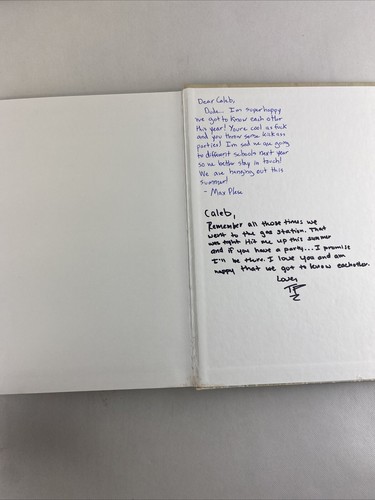 Dear Caleb,
Dude... I'm super happy
we got to know each other
this year! You're cool as fuck
and you throw some kick ass
parties! I'm sad we are going
to different schools next year
so we better stay in touch!
We are hanging out this
summer!
- Max
Caleb,
Remember all those times we
went to the gas station. That
was tight. Hit me up this summer
and if you have a party... I promise
I'll be there. I love you and am
happy that we got to know eachother.
Love,